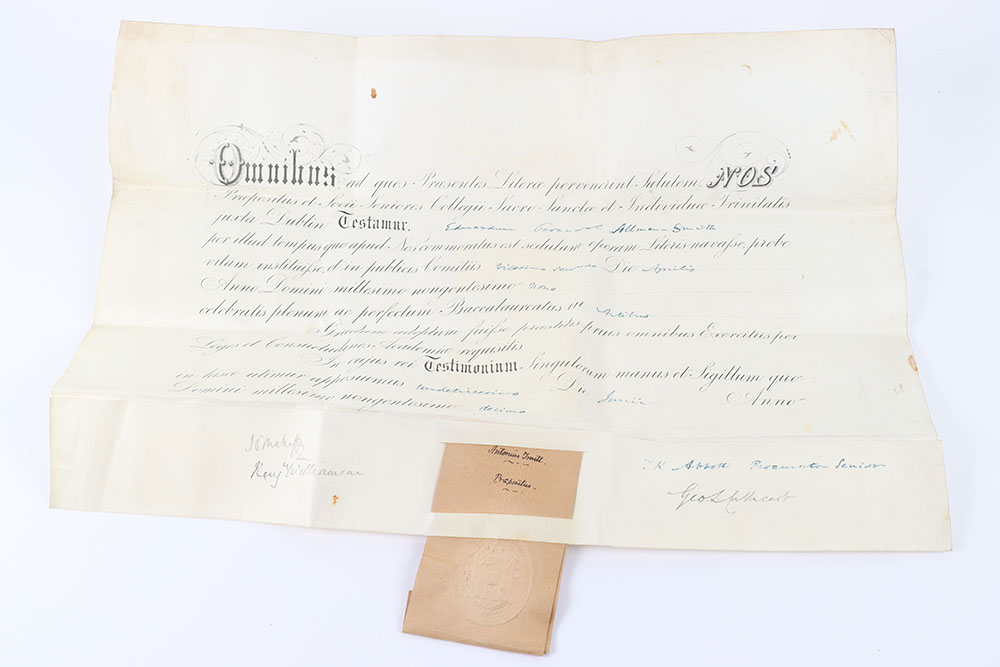 Omnibus ad quos Præsentes Literæ pervenerint Salutem. NOS
Præpositus et Socii Seniores Collegii Sacro Sanctæ et Individuæ Trinitatis
juxta Dublin Testamur, Edvardum Allman Smith
per illud tempus quo apud Nos commoratus est sedulam operam Literis navasse, probe
vitam instituisse, et in publicis Comitiis vicesimo secundo Die Aprilis
Anno Domini millesimo nongentesimo nono
celebratis plenum ac perfectum Baccalaureatus in Artibus
Gradum adeptum fuisse præstitis prius omnibus Exercitiis per
Leges et Consuetudines Academiæ requisitis
In cujus rei Testimonium Singulorum manus et Sigillum quo
in hisce utimur apposuimus Die Junii Anno
Domini millesimo nongentesimo decimo
J P Mahaffy
Benj Williamson
Antonius Traill
Præpositus.
T K Abbott Procurator Senior
Geo. L. Cathcart